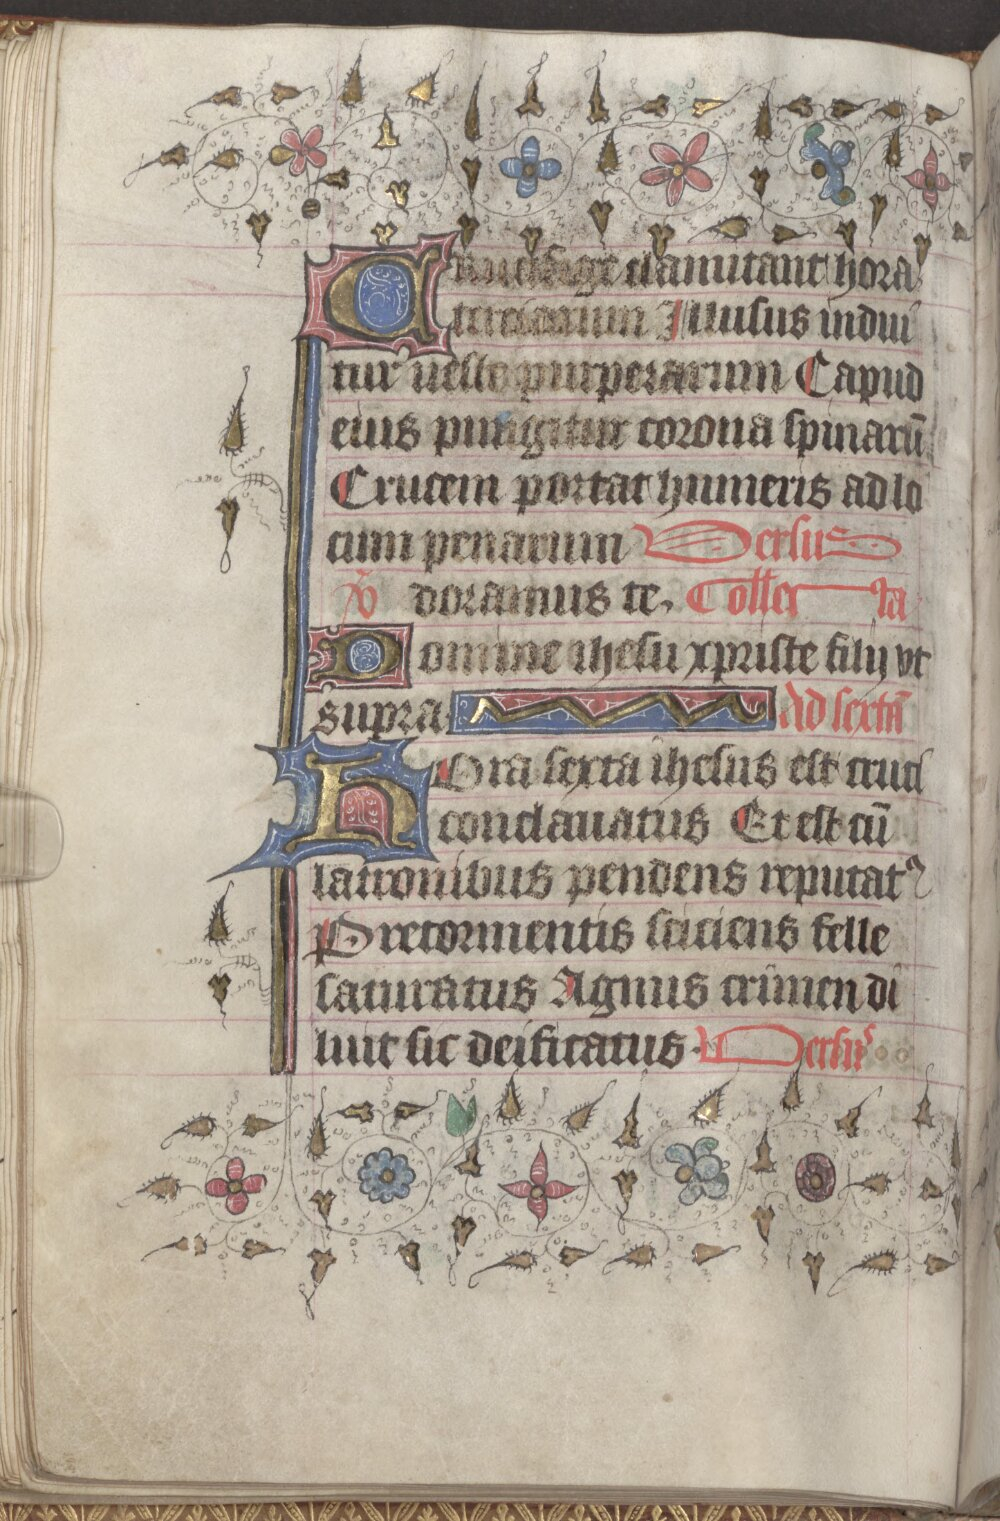 Crucifige clamitant hora
terciarum Illusus indui
tur veste purperarum Capud
eius pungitur corona spinarū
Crucem portat humeris ad lo
cum penarum Versus
A doramus te. Collec ta
Domine ihesu xpriste filij vt
supra Ad sextā
Hora sexta ihesus est cruci
conclauatus Et est cū
latronibus pendens reputatꝰ
Pre tormentis sciciens felle
saturatus Agnus crimen di
luit sic deificatus Versus